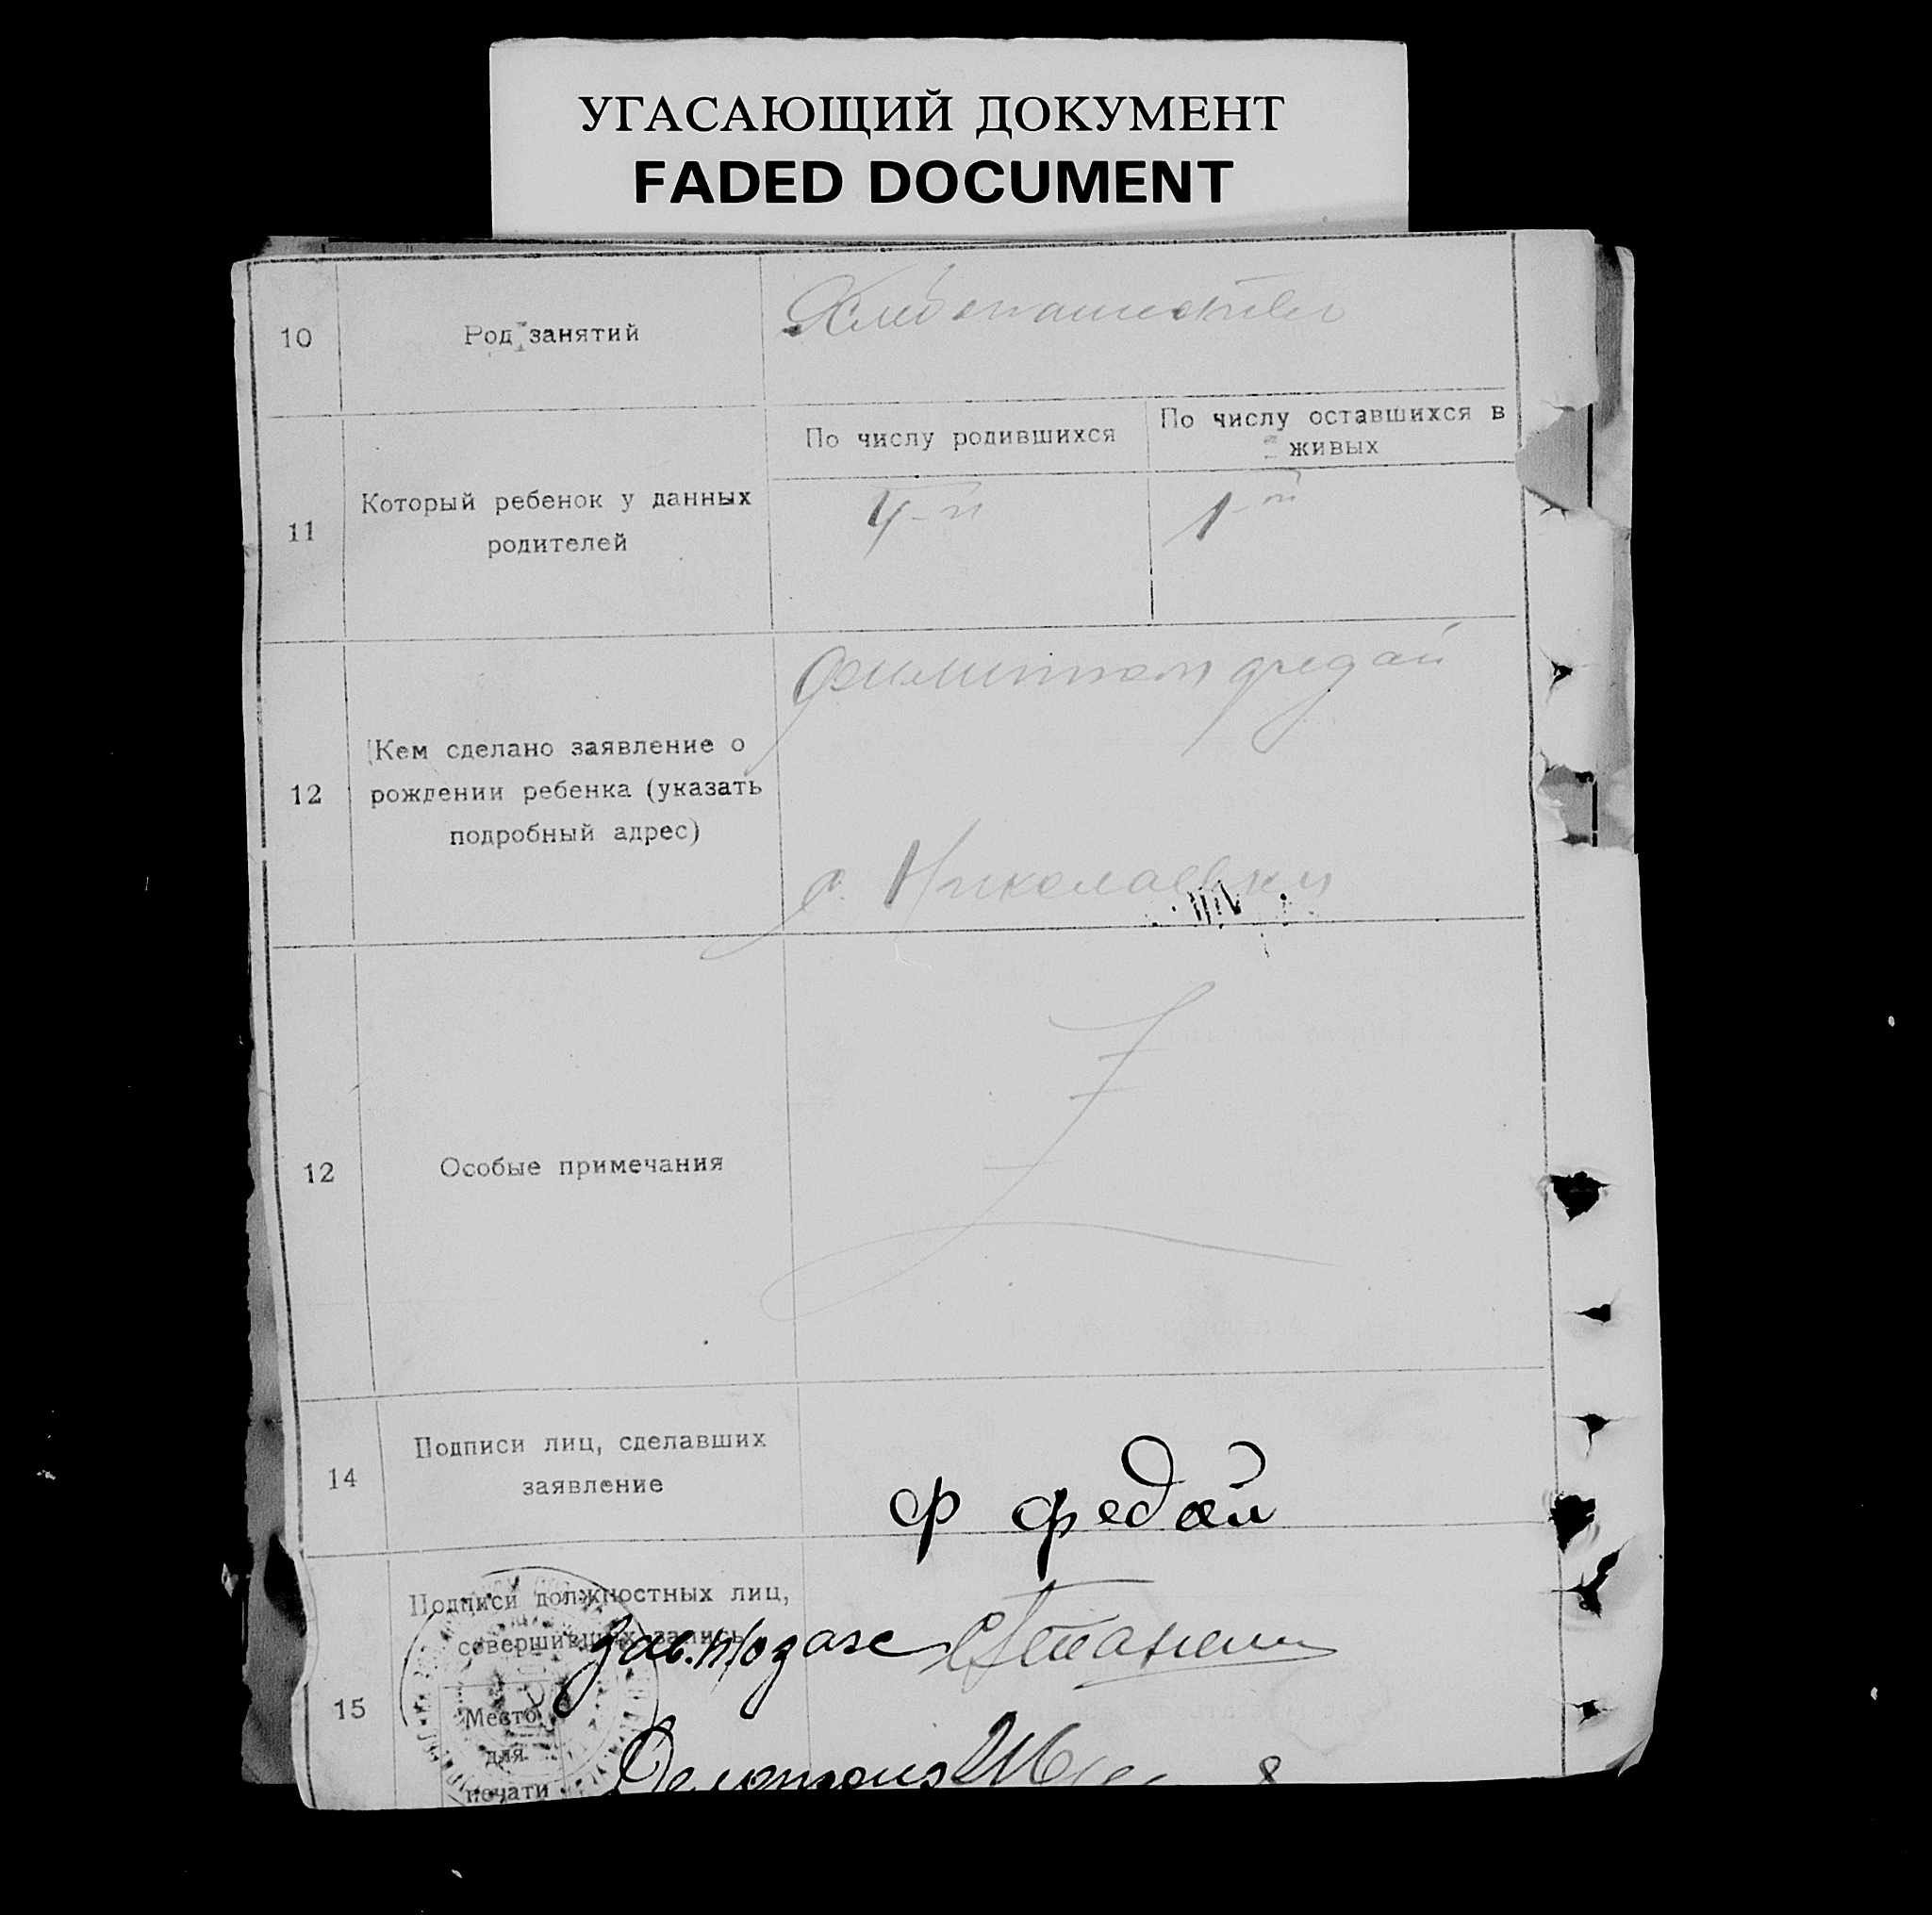 УГАСАЮЩИЙ ДОКУМЕНТ
FADED DOCUMENT
10
Род занятий
Хлебопашество
11
Который ребенок у данных
родителей
По числу родившихся
По числу оставшихся в
живых
4-й
1-й
12
Кем сделано заявление о
рождении ребенка (указать
подробный адрес)
Федай
с. Николаевки
12
Особые примечания
14
Подписи лиц, сделавших
заявление
Ф Федай
15
Подписи должностных лиц,
совершивших запись
Место
для
печати